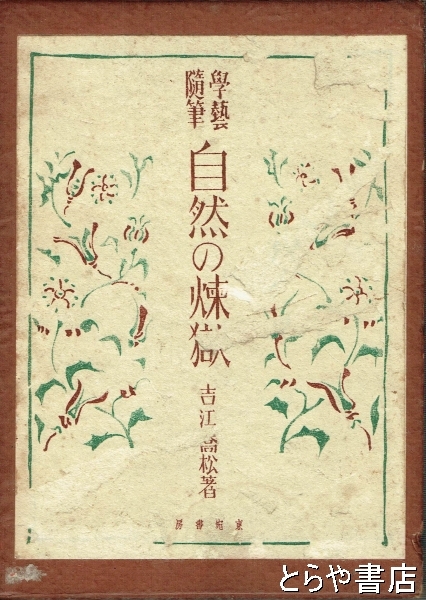 學藝
隨筆
自然の煉獄
吉江喬松著
東宛書房
とらや書店